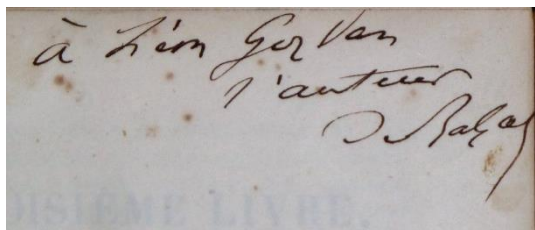 à Léon Gozlan
l'auteur
De Balzac
OISIÈME LIVRE.